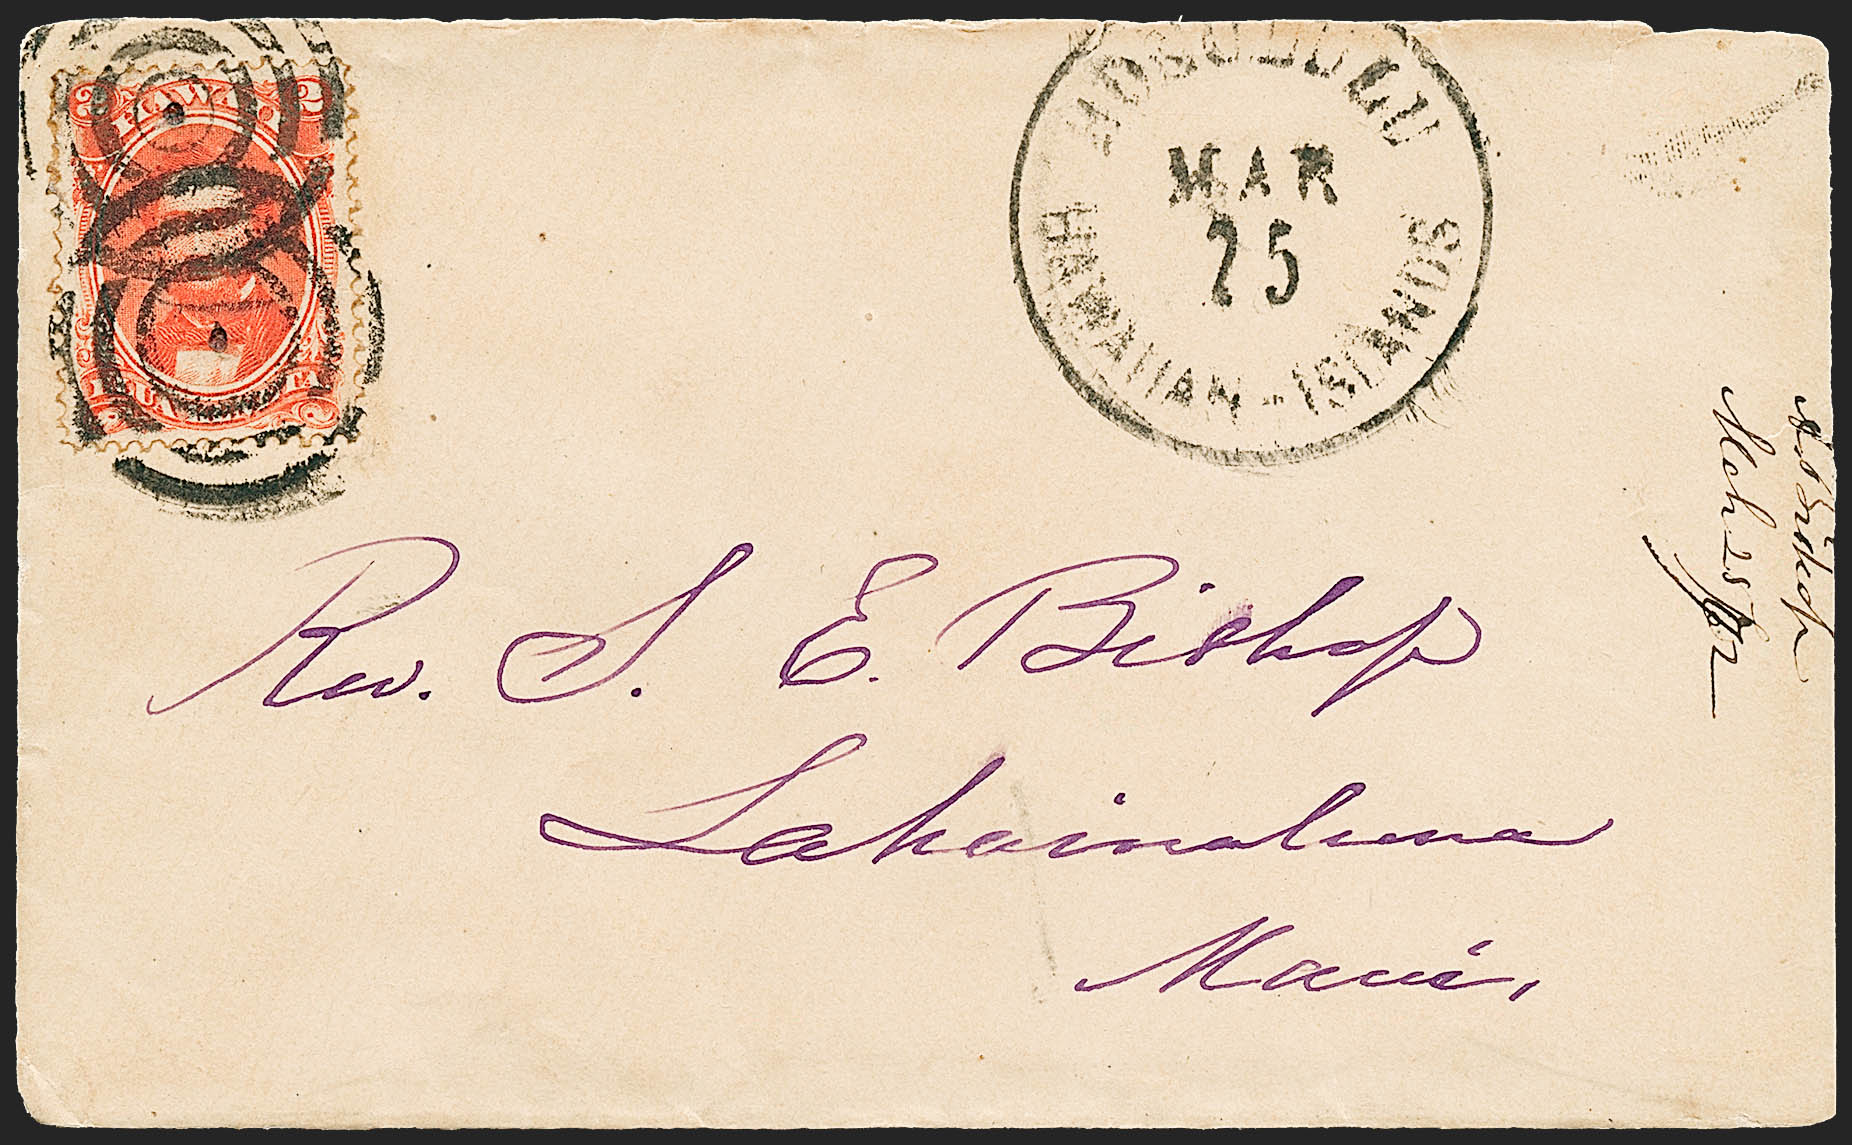 2 HAWAII 2
ELUA KENETA
HONOLULU
MAR
25
HAWAIIAN-ISLANDS
Rev. S. E. Bishop
Lahainaluna
Maui,
Mch 25/72